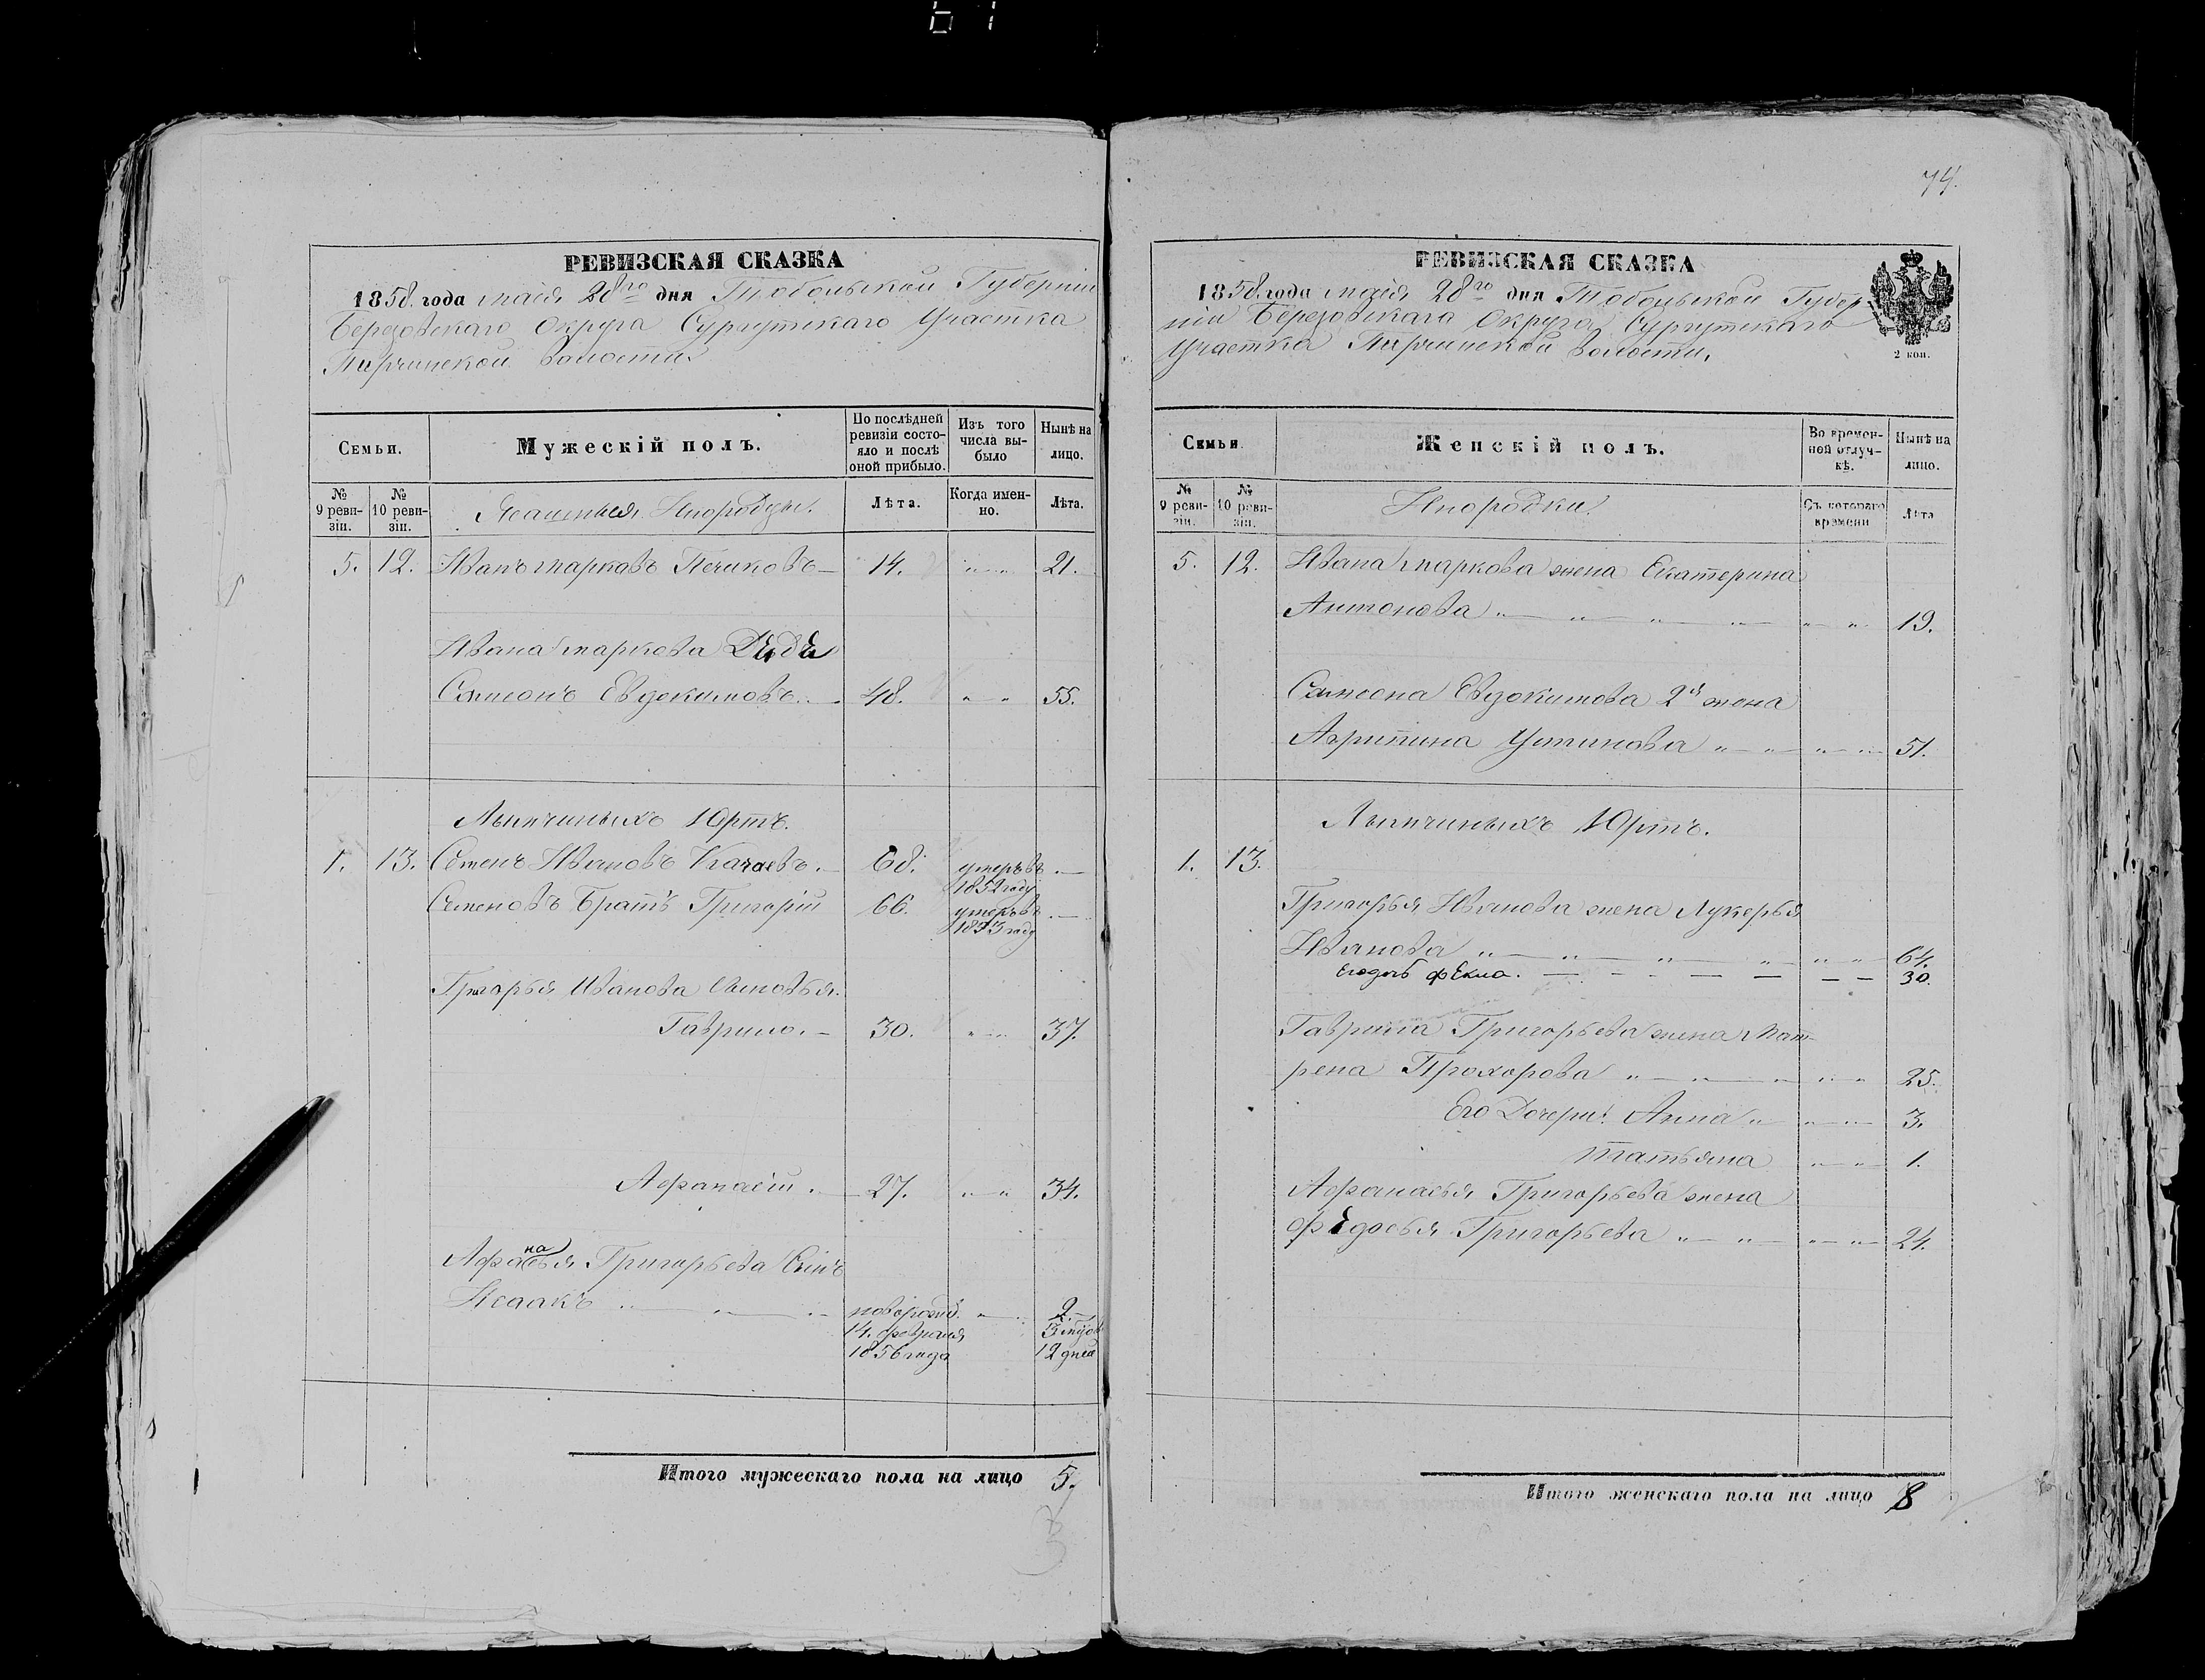 61
РЕВИЗСКАЯ СКАЗКА
1858. года маія 28го дня Тобольской Губерніи
Березовскаго Округа Сургутскаго Участка
Пирчинской волости.
Семьи.
Мужескій полъ.
По послѣдней ревизіи состояло и послѣ оной прибыло.
Изъ того числа выбыло
Нынѣ на лицо.
№ 9 ревизіи.
№ 10 ревизіи.
Ясашныя Инородцы.
Лѣта.
Когда именно.
Лѣта.
5. 12. Иванъ Марковъ 14. 21.
Ивана Маркова Дядя
Самсонъ Евдокимовъ 48. 55.
Юртъ.
1. 13. Семенъ Ивановъ Качаевъ. 68. умеръ въ 1852 году
Семеновъ Братъ Григорій 66. умеръ въ 1853 году
Григорья Иванова Сыновья.
Гаврило. 30. 37.
Афанасій. 27. 34.
Афанасья Григорьева Сынъ
Исаакъ новорожд. 14. февраля 1856 года 2. 3 мѣся 12 дней
Итого мужескаго пола на лицо 5.
74.
РЕВИЗСКАЯ СКАЗКА
1858. года маія 28го дня Тобольской Губер-
ніи Березовскаго Округа Сургутскаго
Участка Пирчинской волости.
2 коп.
Семьи.
Женскій полъ.
Во временной отлучкѣ.
Нынѣ на лицо.
№ 9 ревизіи.
№ 10 ревизіи.
Инородки.
Съ котораго времени
Лѣта
5. 12. Ивана Маркова жена Екатерина
Антонова 19.
Самсона Евдокимова 2я жена
Агрипина Устинова 51.
Юртъ.
1. 13.
Григорья Иванова жена Лукерья
Иванова 64.
Его дочь Фекла. 30.
Гаврила Григорьева жена Мат-
рена Прохорова 25.
Его Дочери: Анна 3.
Татьяна 1.
Афанасья Григорьева жена
Федосья Григорьева 24.
Итого женскаго пола на лицо 8